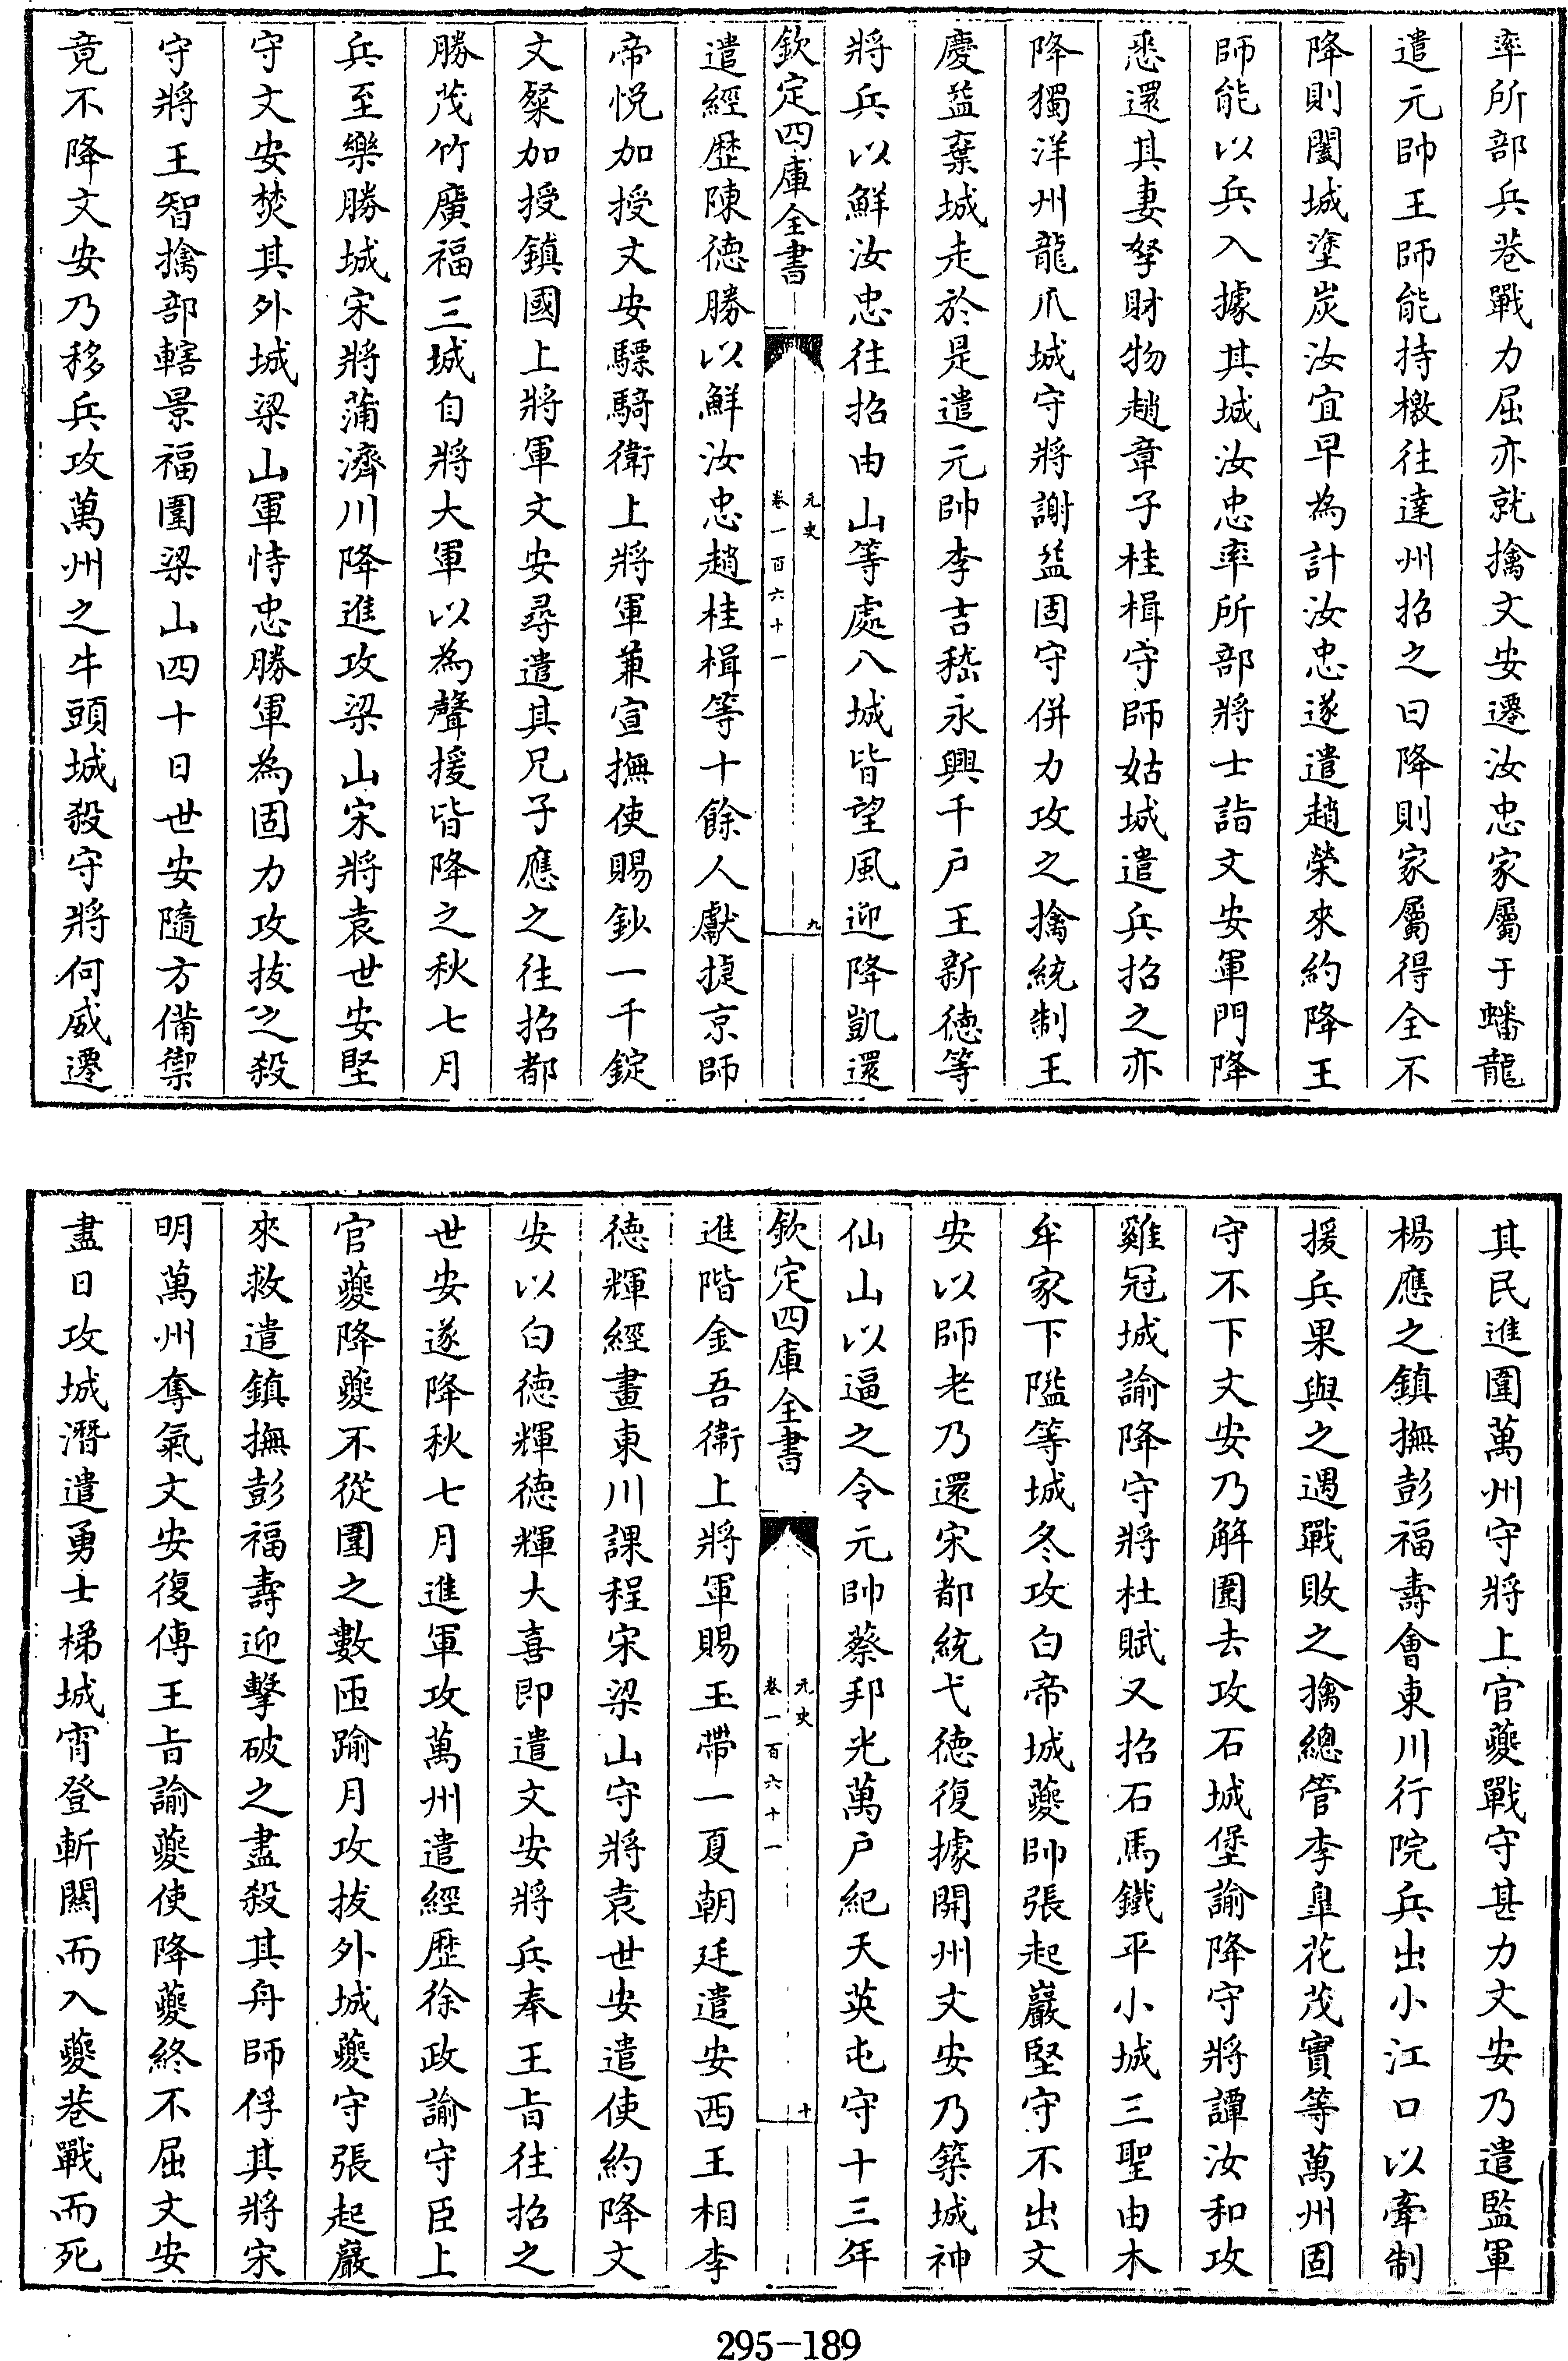 率所部兵巷戰力屈亦就擒文安遷汝忠家屬于蟠龍
遣元帥王師能持檄往達州招之曰降則家屬得全不
降則闔城塗炭汝宜早為計汝忠遂遣趙榮來約降王
師能以兵入據其城汝忠率所部將士詣文安軍門降
悉還其妻孥財物趙章子桂楫守師姑城遣兵招之亦
降獨洋州龍爪城守將謝益固守併力攻之擒統制王
慶益棄城走於是遣元帥李吉嵇永興千户王新徳等
將兵以鮮汝忠往招由山等處八城皆望風迎降凱還
欽定四庫全書
元史
卷一百六十一
九
遣經歴陳徳勝以鮮汝忠趙桂楫等十餘人獻捷京師
帝悦加授文安驃騎衛上將軍兼宣撫使賜鈔一千錠
文粲加授鎮國上將軍文安尋遣其兄子應之往招都
勝茂竹廣福三城自將大軍以為聲援皆降之秋七月
兵至樂勝城宋將蒲濟川降進攻梁山宋將袁世安堅
守文安焚其外城梁山軍恃忠勝軍為固力攻拔之殺
守將王智擒部轄景福圍梁山四十日世安隨方備禦
竟不降文安乃移兵攻萬州之牛頭城殺守將何威遷
其民進圍萬州守將上官夔戰守甚力文安乃遣監軍
楊應之鎮撫彭福壽會東川行院兵出小江口以牽制
援兵果與之遇戰敗之擒總管李臯花茂實等萬州固
守不下文安乃解圍去攻石城堡諭降守將譚汝和攻
雞冠城諭降守將杜賦又招石馬鐵平小城三聖由木
牟家下隘等城冬攻白帝城夔帥張起巖堅守不出文
安以師老乃還宋都統弋徳復據開州文安乃築城神
仙山以逼之令元帥蔡邦光萬户紀天英屯守十三年
欽定四庫全書
元史
卷一百六十一
十
進階金吾衛上將軍賜玉帶一夏朝廷遣安西王相李
徳輝經畫東川課程宋梁山守將袁世安遣使約降文
安以白徳輝徳輝大喜即遣文安將兵奉王㫖往招之
世安遂降秋七月進軍攻萬州遣經歴徐政諭守臣上
官夔降夔不從圍之數匝踰月攻拔外城夔守張起巖
來救遣鎮撫彭福壽迎擊破之盡殺其舟師俘其將宋
明萬州奪氣文安復傳王㫖諭夔使降夔終不屈文安
盡日攻城潛遣勇士梯城宵登斬關而入夔巷戰而死
295-189